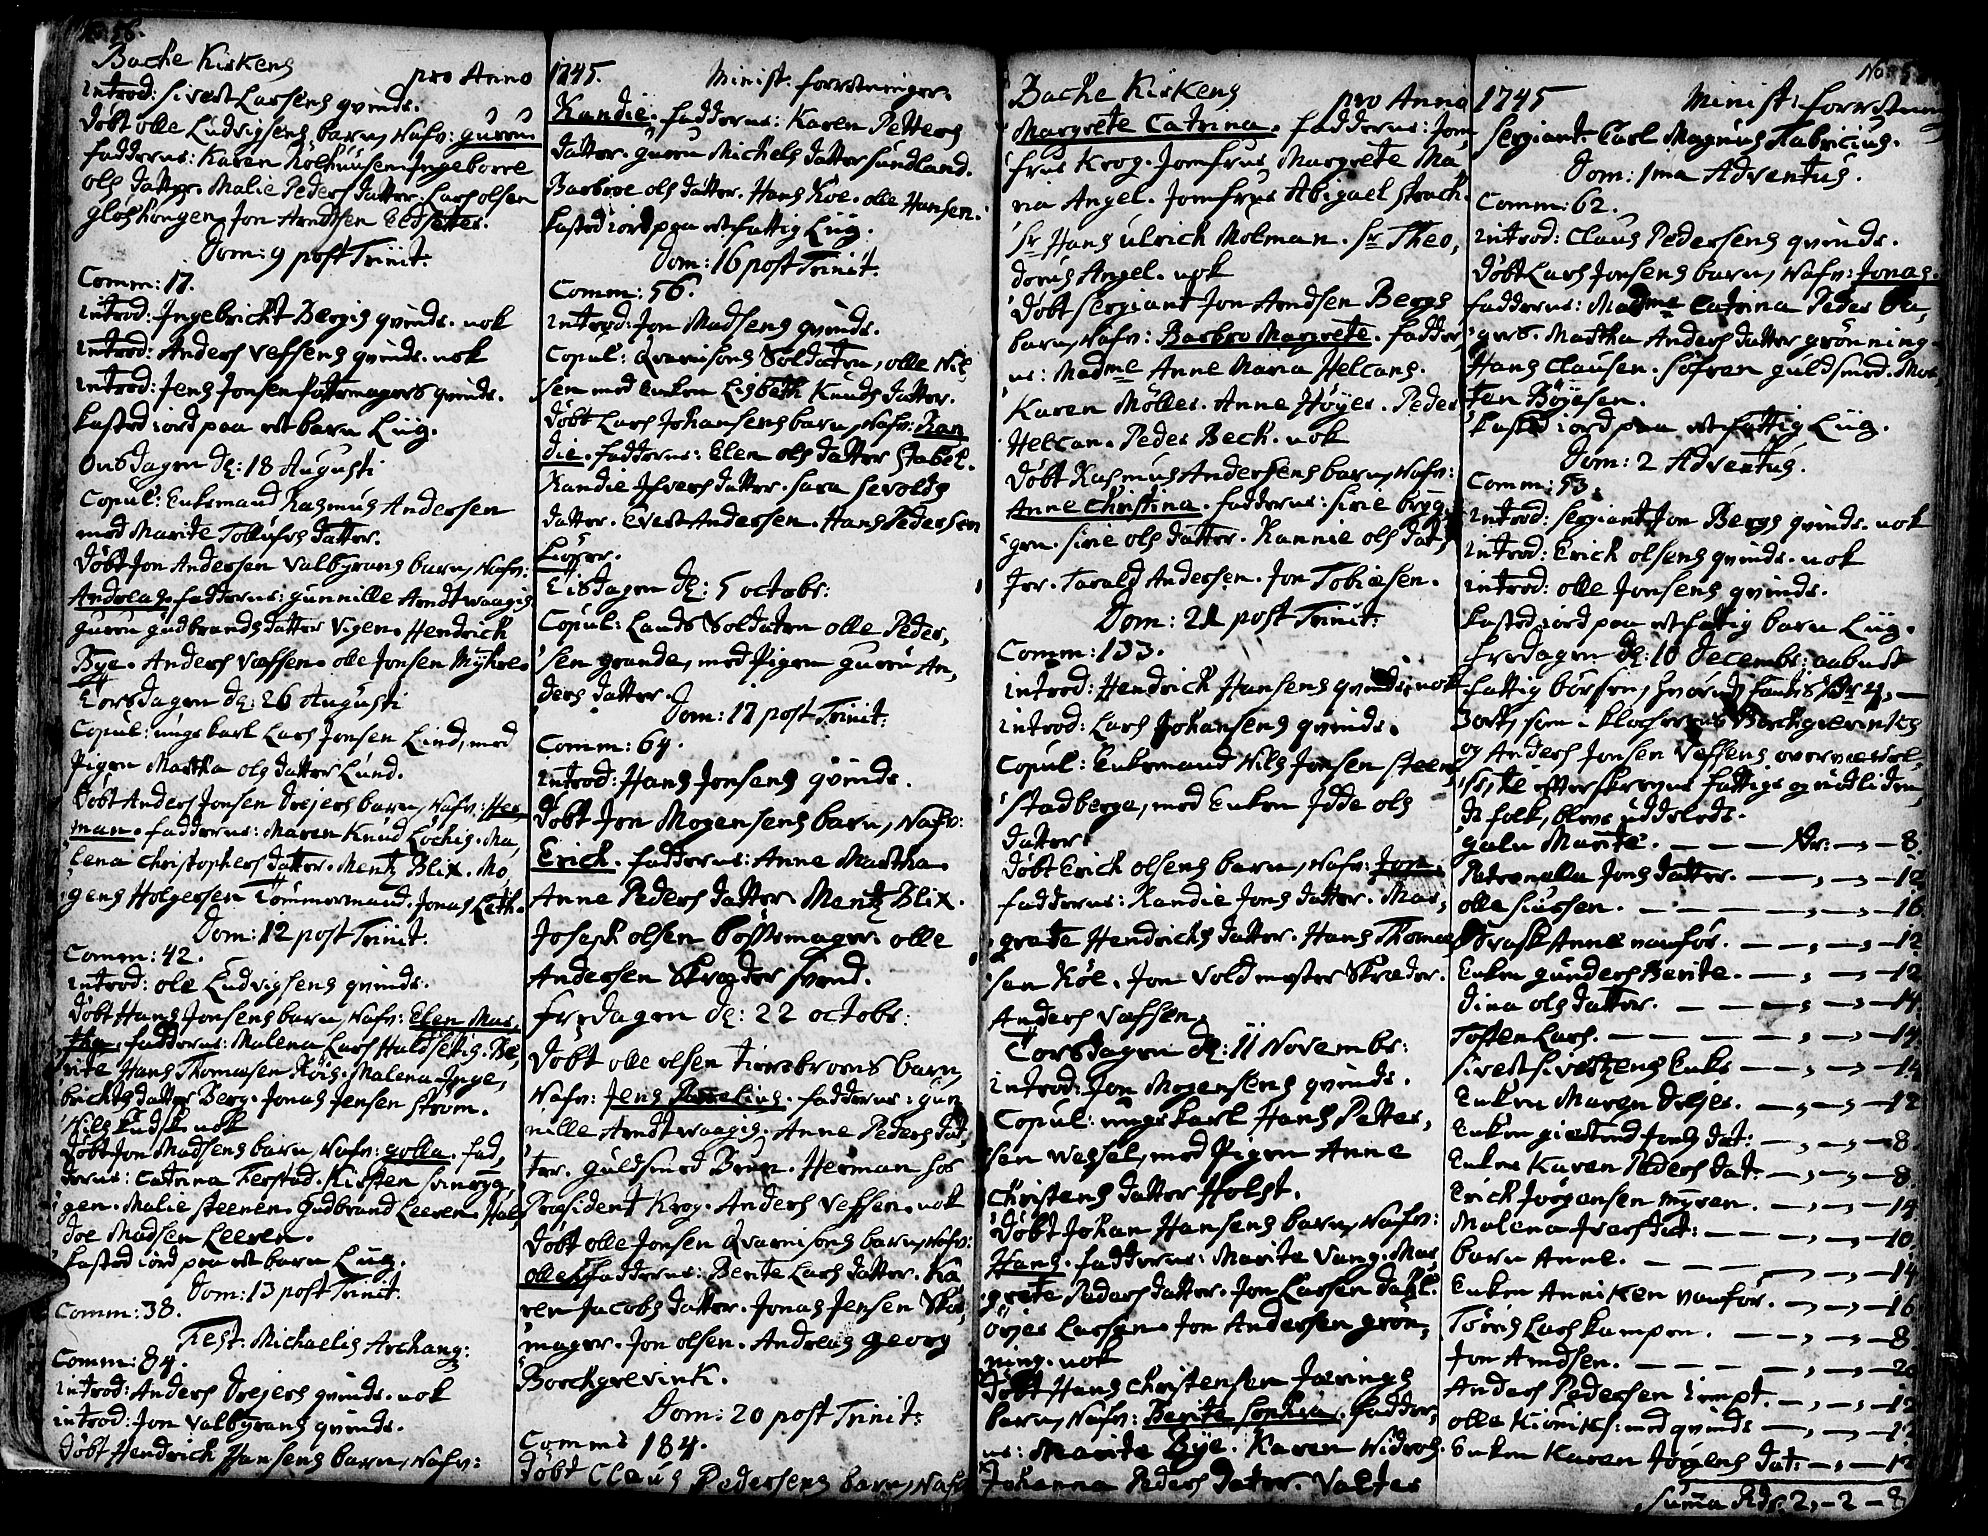 Bache Kirkens pro Anno
introd: Sivert Larsens qvinde.
Döbt olle Ludvigsens barn, Nafn: guren
fadderne: Karen Rölhuusen Ingeborre
ols datter. Malie Peders datter. Lars olsen
Jon Arndtsen
Dom: 9 post Trinit:
Comm: 17.
introd: Ingebricht Bergis qvinde. nok
introd: Anders Vefsens qvinde. nok
introd: Jens Jonsen Pottemagers qvinde.
kasted iord paa et barn Liig.
Onsdagen d: 18 Augusti
Copul: Enkemand Rasmus Andersen
med Marite Tollufs datter.
Döbt Jon Andersen Valbyrans barn, Nafn:
Andreas. fadderne: gunnille Arndt waagis
guren gudbrands datter Vigen. Hendrick
Bye. Anders Vefsen. olle Jonsen Myhre.
Torsdagen d: 26 Augusti
Copul: ungkarl Lars Jonsen Lind, med
Pigen Martha ols datter Lund.
Döbt Anders Jonsen Drejers barn, Nafn: Her
man. fadderne: Maren Knud Lochis. Ma,
lena Christophers datter. Mentz Blix. Mo,
gens Holgersen Tömmermand. Jonas Leth.
Dom: 12 post Trinit:
Comm: 42.
introd: ole Ludvigsens qvinde.
Döbt Hans Jonsens barn, Nafn: Elen Mar,
tha. fadderne: Malena Lars Huldsettis. Be,
rite Hans Thomæsen Röis. Malena Inge,
brichts datter Berg. Jonas Jensen Ström.
Nils Kudsk. nok
Döbt Jon Madsens barn, Nafn: golla. fad,
derne: Catrina Ferstad. Kirsten
gen. Malie Steenen. Gudbrand Leeren. Hal,
doe Madsen Leeren.
kasted iord paa et barn Liig.
Dom: 13 post Trinit.
Comm: 38.
Fest: Michaelis Archang:
Comm: 84.
introd: Anders Drejers qvinde. nok
introd: Jon Valbyrans qvinde.
Döbt Hendrich Hansens barn, Nafn:
1745. Minist: forretninger.
Randie. fadderne: Karen Petters
datter. guren Michels datter Sundland.
Barbroe ols datter. Hans Röe. olle Hansen.
kasted iord paa et fattig Liig.
Dom: 16 post Trinit:
Comm: 56.
introd: Jon Madsens qvinde.
Copul: Qvarnisons Soldaten, olle Nil,
sen med enken Lisbeth Knuds datter.
Döbt Lars Johansens barn, Nafn: Ran
die. fadderne: Elen ols datter Stabel.
Randie Ifvers datter. Sara Sevolds
datter. Evert Andersen. Hans Pedersen
Tisdagen d: 5 octobr:
Copul: Lands Soldaten olle Peder,
sen grande, med Pigen guren An,
ders datter.
Dom: 17 post Trinit:
Comm: 64.
introd: Hans Jonsens qvinde.
Döbt Jon Mogensens barn, Nafn:
Erich. fadderne: Anne Martha.
Anne Peders datter. Mentz Blix.
Joseph olsen bössemager. olle
Andersen Skræder Svend.
fredagen d: 22 octobr:
Döbt olle olsen Tiærebroens barn,
Nafn: Jens fadderne: gun
nille Arndt waagis. Anne Peders dat,
ter. guldsmed Brun. Herman hos
Præsident Krog. Anders Vefsen. nok
Döbt olle Jonsen Qvarnisons barn, Nafn:
olle. fadderne: Berite Lars datter. Ka
ren Jacobs datter. Jonas Jensen Skoe
mager. Jon olsen. Andreas georg
Borchgrevink.
Dom: 20 post Trinit:
Comm: 184.
Döbt Claus Pedersens barn, Nafn
Bache Kirkens pro Anno
Margrete Catrina. fadderne: Jom,
frue Krog. Jomfrue Margrete Ma
ria Angel. Jomfrue Abigael
Sr Hans Ulrich Molman. Sr Theo,
dorus Angel. nok
Döbt Sergiant Jon Arndsen Bergs
barn, Nafn: Barbro Margrete. fadder,
ne: Madme Anne Maria Helcans.
Karen Möller. Anne Höyer. Peder
Helcan. Peder Beck. nok
Döbt Rasmus Andersens barn, Nafn:
Anne Christina. fadderne: Sirie bryg,
gen. Sirie ols datter. Rannie ols dat,
ter. Tarald Andersen. Jon Tobiesen.
Dom: 21 post Trinit:
Comm: 133.
introd: Hendrich Hansens qvinde. nok
introd: Lars Johansens qvinde.
Copul: Enkemand Nils Jonsen Steen,
Stadberge, med Enken Idde ols
datter.
Döbt Erich olsens barn, Nafn: Jon.
fadderne: Randie Jons datter. Mar,
grete Hendrichs datter. Hans Thomæ
sen Röe. Jon Voldmester Skræder.
Anders Vefsen.
Torsdagen d: 11 Novembr:
introd: Jon Mogensens qvinde.
Copul: ungkarl Hans Petter,
sen Wessel, med Pigen Anne
Christens datter Holst.
Döbt Johan Hansens barn, Nafn:
Hans. fadderne: Marite Vang. Mar,
grete Peders datter. Jon Larsen Dahl.
Örjer Larsen. Jon Andersen grön,
ning. nok
Döbt Hans Christensen Færings
barn, Nafn: Berite Sophia. fadder,
ne: Marite Bye. Karen Widros.
Johanna Peders dater. Valter
1745 Minist: forretning
Sergiant Carl Magnus Fabricius.
Dom: 1ma Adventus.
Comm: 62.
introd: Claus Pedersens qvinde.
Döbt Lars Jonsens barn, Nafn: Jonas.
fadderne: Madme Catrina Peder
Martha Anders datter grönning.
Hans Clausen. Söfren guldsmed. Mor,
ten Böyesen.
kasted iord paa et fattig Liig.
Dom: 2 Adventus.
Comm: 53.
introd: Sergiant Jon Bergs qvinde. nok
introd: Erich olsens qvinde. nok
introd: olle Jonsens qvinde.
kasted iord paa et fattig barn Liig.
fredagen d: 10 Decembr: aabnet
fattig börsen, hvorudi fantes
som i klocheren Borchgrevincks
og Anders Jonsen Vefsens overværel,
se, til efterskrevne fattige og nödliden,
de folk, blev uddeelede.
galen Marite. — — — Xr: — 8.
Petronella Jons datter. — — — 12
olle Siursen. — — — 16
Anne vanför. — — — 12
Enken gunders Berite. — — — 12
Dina ols datter. — — — 14
Tosten Lars. — — — 14
Sivert Sivertzens Enke — — — 14
Enken Maren Drejer. — — — 12
Enken giertrud Jons dat: — — — 8
Enken Karen Peders dat: — — — 8
Erich Jörgensen Myren. — — — 14
Malena Ivers dat: — — — 10
barn Anne. — — — 14
Enken Anniken vanför. — — — 16
Lars kampen. — — — 8
Jon Arndsen. — — — 20
Anders Pedersen — — — 12
olle med qvinde — — — 12
Enken Karen Jörgens dat: — — 12
Suma Rdr. 2, - 2 - 8